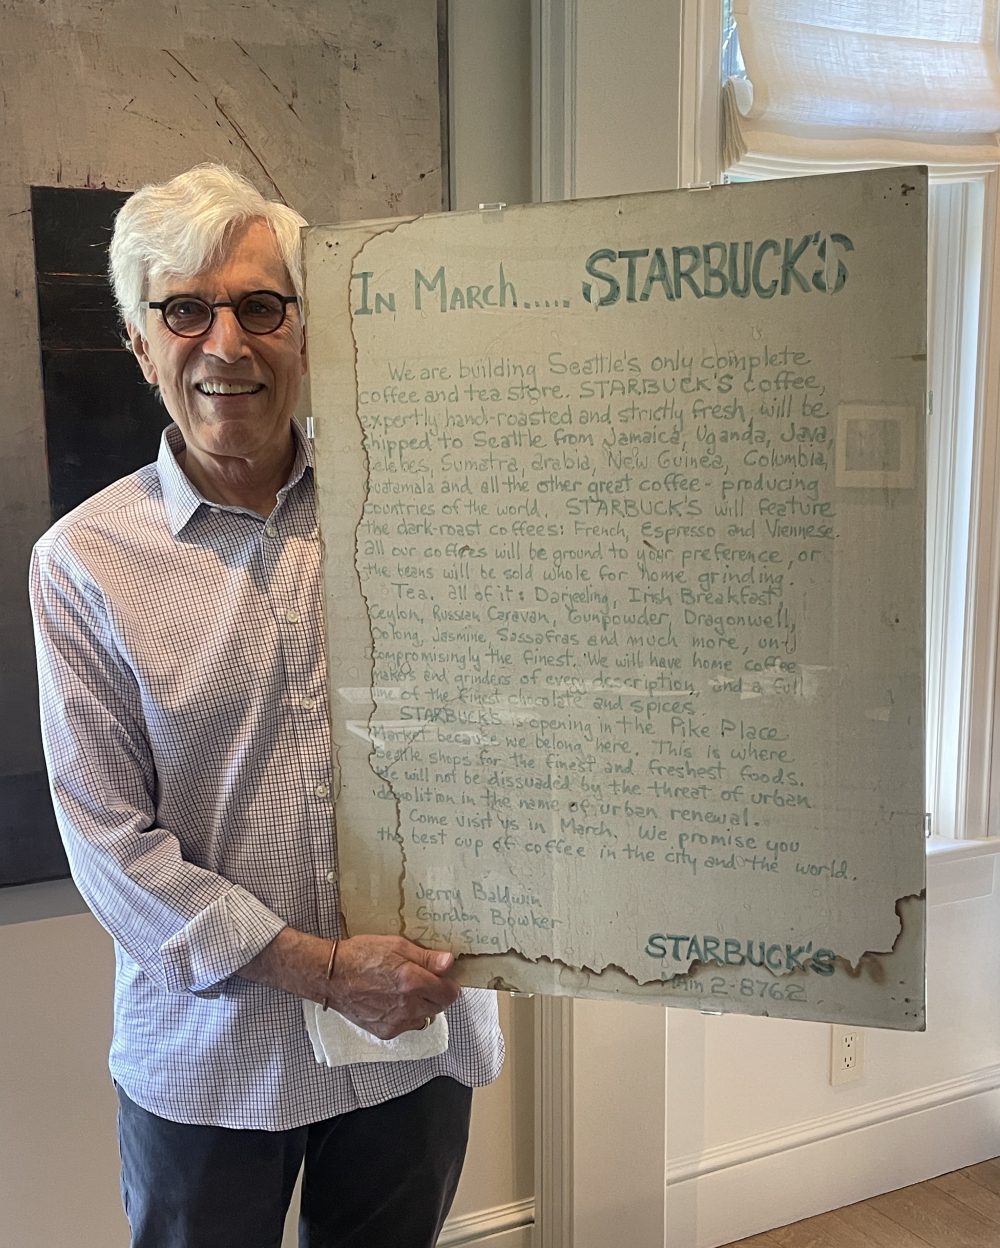 In March..... STARBUCK'S
We are building Seattle's only complete
coffee and tea store. STARBUCK'S coffee,
expertly hand-roasted and strictly fresh, will be
shipped to Seattle from Jamaica, Uganda, Java,
Celebes, Sumatra, Arabia, New Guinea, Columbia,
Guatamala and all the other great coffee-producing
countries of the world. STARBUCK'S will feature
the dark-roast coffees: French, Espresso and Viennese.
All our coffees will be ground to your preference, or
the beans will be sold whole for home grinding.
Tea. All of it: Darjeeling, Irish Breakfast,
Ceylon, Russian Caravan, Gunpowder, Dragonwell,
Oolong, Jasmine, Sassafras and much more, un-
compromisingly the finest. We will have home coffee
makers and grinders of every description, and a full
line of the finest chocolate and spices.
STARBUCK'S is opening in the Pike Place
Market because we belong here. This is where
Seattle shops for the finest and freshest foods.
We will not be dissuaded by the threat of urban
demolition in the name of urban renewal.
Come visit us in March. We promise you
the best cup of coffee in the city and the world.
Jerry Baldwin
Gordon Bowker
Zev Siegl
STARBUCK'S
MAin 2-8762